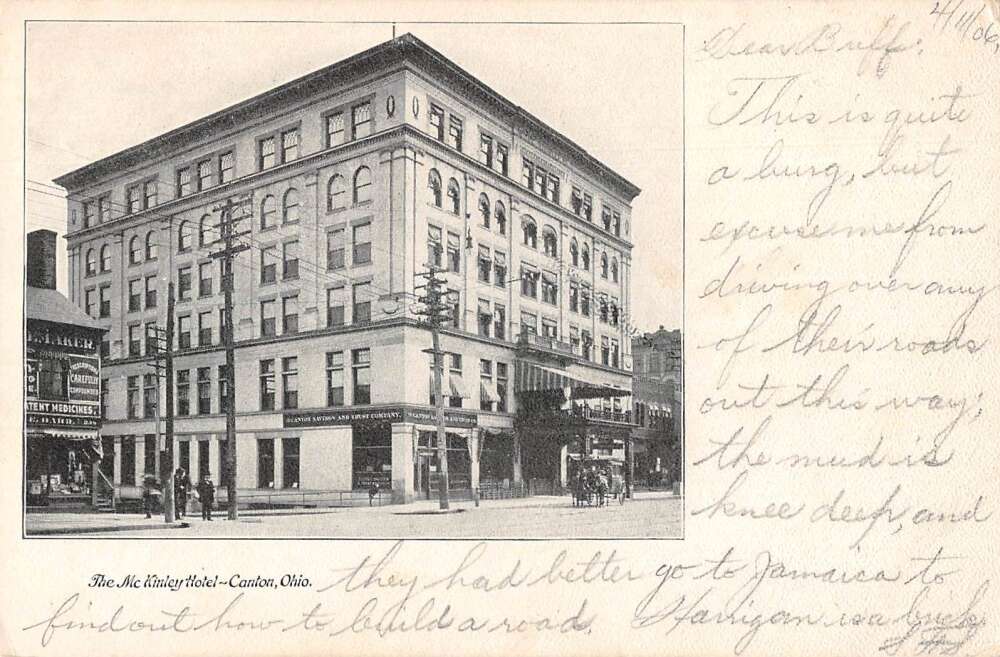 4/11/06
Dear Buff:
This is quite
a burg, but
excuse me from
driving over any
of their roads
out this way;
the mud is
knee deep, and
they had better go to Jamaica to
find out how to build a road. Harrigan is a brick
The McKinley Hotel~Canton, Ohio.
MAKER
PRESCRIPTIONS
CAREFULLY
COMPOUNDED
PATENT MEDICINES.
SAVINGS AND TRUST COMPANY.